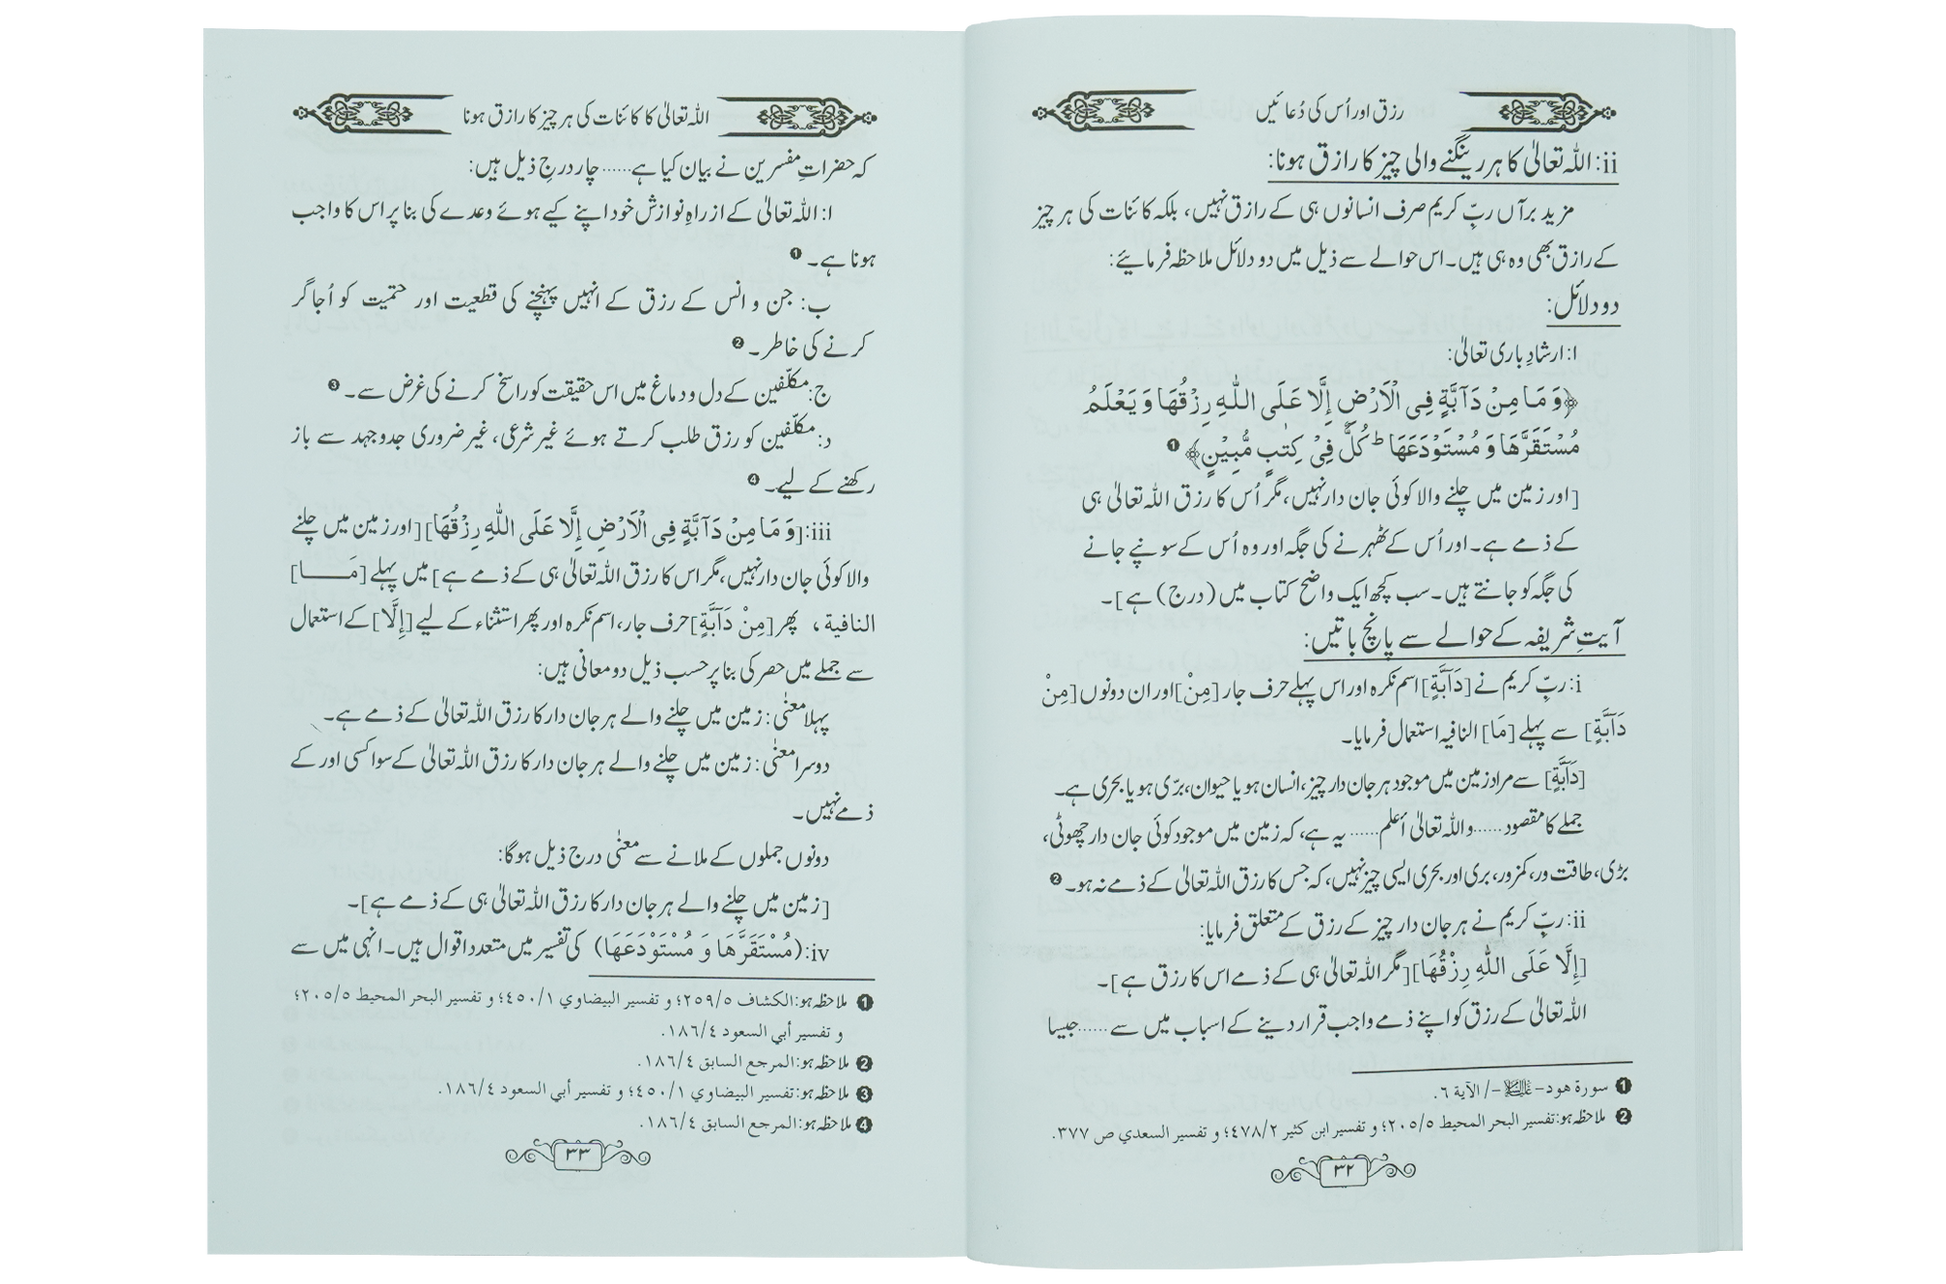 رزق اور اُس کی دُعائیں
ii: اللہ تعالیٰ کا ہر رینگنے والی چیز کا رازق ہونا:
مزید برآں ربِّ کریم صرف انسانوں ہی کے رازق نہیں، بلکہ کائنات کی ہر چیز
کے رازق بھی وہ ہی ہیں۔ اس حوالے سے ذیل میں دو دلائل ملاحظہ فرمائیے:
دو دلائل:
ا: ارشادِ باری تعالیٰ:
﴿وَ مَا مِنْ دَآبَّةٍ فِی الْاَرْضِ اِلَّا عَلَی اللّٰهِ رِزْقُهَا وَ یَعْلَمُ
مُسْتَقَرَّهَا وَ مُسْتَوْدَعَهَا ؕ كُلٌّ فِیْ كِتٰبٍ مُّبِیْنٍ﴾ ❶
[اور زمین میں چلنے والا کوئی جان دار نہیں، مگر اُس کا رزق اللہ تعالیٰ ہی
کے ذمے ہے۔ اور اُس کے ٹھہرنے کی جگہ اور وہ اُس کے سونپے جانے
کی جگہ کو جانتے ہیں۔ سب کچھ ایک واضح کتاب میں (درج) ہے]۔
آیتِ شریفہ کے حوالے سے پانچ باتیں:
i: ربِّ کریم نے [دَآبَّةٍ] اسم نکرہ اور اس پہلے حرف جار [مِنْ] اور ان دونوں [مِنْ
دَآبَّةٍ] سے پہلے [مَا] النافیہ استعمال فرمایا۔
[دَآبَّةٍ] سے مراد زمین میں موجود ہر جان دار چیز، انسان ہو یا حیوان، برّی ہو یا بحری ہے۔
جملے کا مقصود...... واللہ تعالیٰ أعلم...... یہ ہے، کہ زمین میں موجود کوئی جان دار چھوٹی،
بڑی، طاقت ور، کمزور، بری اور بحری ایسی چیز نہیں، کہ جس کا رزق اللہ تعالیٰ کے ذمے نہ ہو۔ ❷
ii: ربِّ کریم نے ہر جان دار چیز کے رزق کے متعلق فرمایا:
[اِلَّا عَلَی اللّٰهِ رِزْقُهَا] [مگر اللہ تعالیٰ ہی کے ذمے اس کا رزق ہے]۔
اللہ تعالیٰ کے رزق کو اپنے ذمے واجب قرار دینے کے اسباب میں سے ...... جیسا
❶ سورة هود - علیہ السلام - / الآیة ٦.
❷ ملاحظہ ہو: تفسير البحر المحيط ٢٠٥/٥؛ و تفسير ابن كثير ٤٧٨/٢؛ و تفسير السعدي ص ٣٧٧.
٣٢
اللہ تعالیٰ کا کائنات کی ہر چیز کا رازق ہونا
کہ حضراتِ مفسرین نے بیان کیا ہے...... چار درجِ ذیل ہیں:
ا: اللہ تعالیٰ کے از راہِ نوازش خود اپنے کیے ہوئے وعدے کی بنا پر اس کا واجب
ہونا ہے۔ ❶
ب: جن و انس کے رزق کے انہیں پہنچنے کی قطعیت اور حتمیت کو اُجاگر
کرنے کی خاطر۔ ❷
ج: مکلّفین کے دل و دماغ میں اس حقیقت کو راسخ کرنے کی غرض سے۔ ❸
د: مکلّفین کو رزق طلب کرتے ہوئے غیر شرعی، غیر ضروری جدوجہد سے باز
رکھنے کے لیے۔ ❹
iii: [وَ مَا مِنْ دَآبَّةٍ فِی الْاَرْضِ اِلَّا عَلَی اللّٰهِ رِزْقُهَا] [اور زمین میں چلنے
والا کوئی جان دار نہیں، مگر اس کا رزق اللہ تعالیٰ ہی کے ذمے ہے] میں پہلے [مَــــا]
النافیة، پھر [مِنْ دَآبَّةٍ] حرف جار، اسم نکرہ اور پھر استثناء کے لیے [اِلَّا] کے استعمال
سے جملے میں حصر کی بنا پر حسب ذیل دو معانی ہیں:
پہلا معنٰی: زمین میں چلنے والے ہر جان دار کا رزق اللہ تعالیٰ کے ذمے ہے۔
دوسرا معنٰی: زمین میں چلنے والے ہر جان دار کا رزق اللہ تعالیٰ کے سوا کسی اور کے
ذمے نہیں۔
دونوں جملوں کے ملانے سے معنٰی درج ذیل ہوگا:
[زمین میں چلنے والے ہر جان دار کا رزق اللہ تعالیٰ ہی کے ذمے ہے]۔
iv: (مُسْتَقَرَّهَا وَ مُسْتَوْدَعَهَا) کی تفسیر میں متعدد اقوال ہیں۔ انہی میں سے
❶ ملاحظہ ہو: الكشاف ٢٥٩/٥؛ و تفسير البيضاوي ٤٥٠/١؛ و تفسير البحر المحيط ٢٠٥/٥؛
و تفسير أبي السعود ١٨٦/٤.
❷ ملاحظہ ہو: المرجع السابق ١٨٦/٤.
❸ ملاحظہ ہو: تفسير البيضاوي ٤٥٠/١؛ و تفسير أبي السعود ١٨٦/٤.
❹ ملاحظہ ہو: المرجع السابق ١٨٦/٤.
٣٣